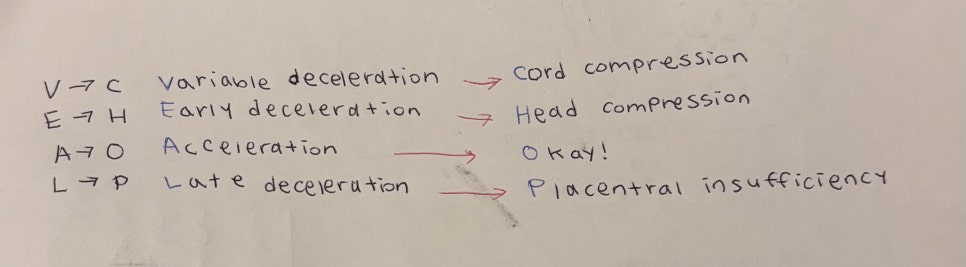 V → C Variable deceleration → Cord compression
E → H Early deceleration → Head compression
A → O Acceleration → Okay!
L → P Late deceleration → Placentral insufficiency